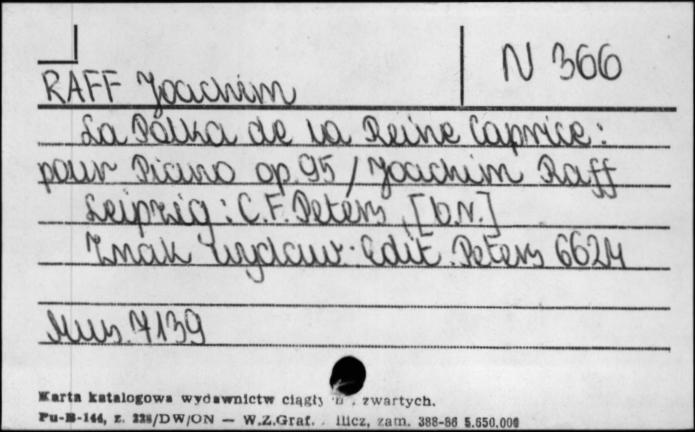 N 366
RAFF Joachim
La Polka de la Reine Caprice :
pour Piano op. 95 / Joachim Raff
Leipzig : C. F. Peters, [b.r.]
Znak wydaw. Edit. Peters 6624
Mus. 7139
Karta katalogowa wydawnictw zwartych.
Pu-B-144, z. 228/DW/ON — W.Z.Graf. zam. 388-86 5.550.000